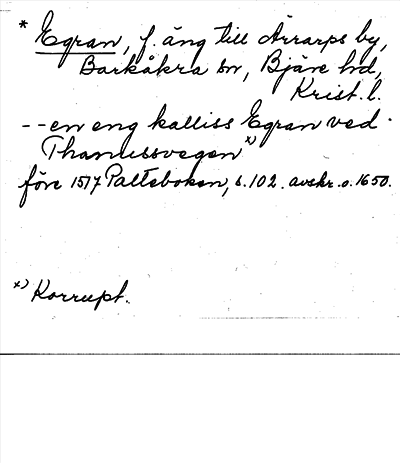 * Egran, f. äng till Ärrarps by,
Barkåkra sn, Bjäre hd,
Krist. l.
-- en eng kalliss Egran ved
Thanussvegen x)
före 1517 Palteboken, s. 102. avskr. o. 1650.
x) Korrupt.